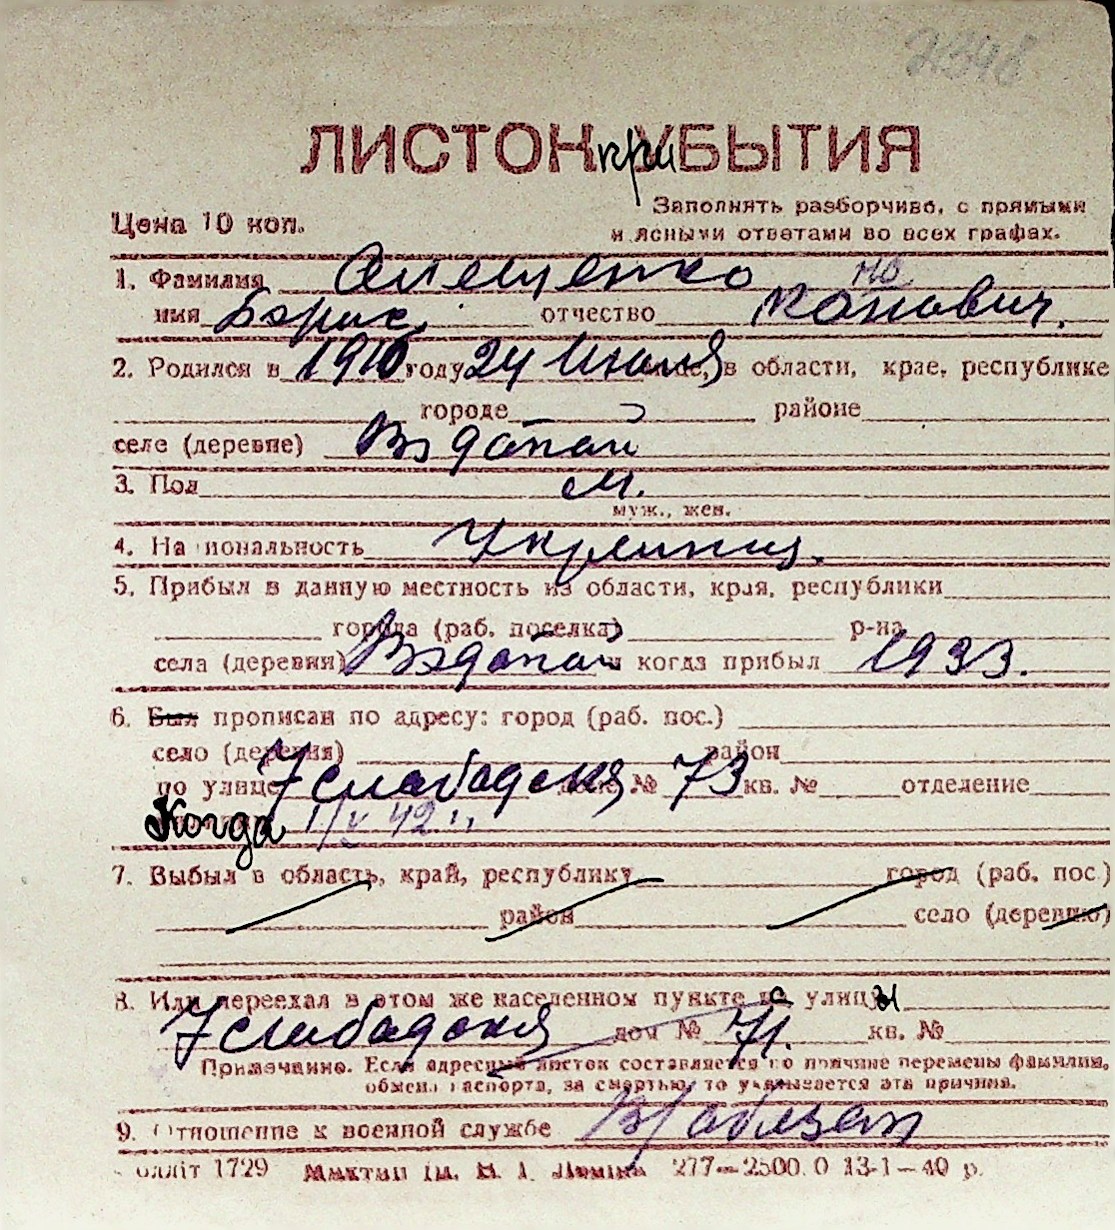 2348
ЛИСТОК приУБЫТИЯ
Цена 10 коп.
Заполнять разборчиво, с прямыми
и ясными ответами во всех графах.
1. Фамилия Омещенко
имя Борис отчество Канович. но
2. Родился в 1910 году 24 Июля в области, крае, республике
городе районе
селе (деревне)
3. Пол М.
муж., жен.
4. Национальность Украинец.
5. Прибыл в данную местность из области, края, республики
города (раб. поселка) р-на
села (деревни) и когда прибыл 1933.
6. Был прописан по адресу: город (раб. пос.)
село (деревня) район
по улице 7 слабадская № 73 кв. № отделение
Когда 1/V 42 г.
7. Выбыл в область, край, республику город (раб. пос.)
район село (деревню)
8. Или переехал в этом же населенном пункте с улицы
7 слабадская дом № 71. кв. №
Примечание. Если адресный листок составляется по причине перемены фамилии,
обмена паспорта, за смертью, то указывается эта причина.
9. Отношение к военной службе В/обязан
олліт 1729 277—2500.0 13-1—40 р.